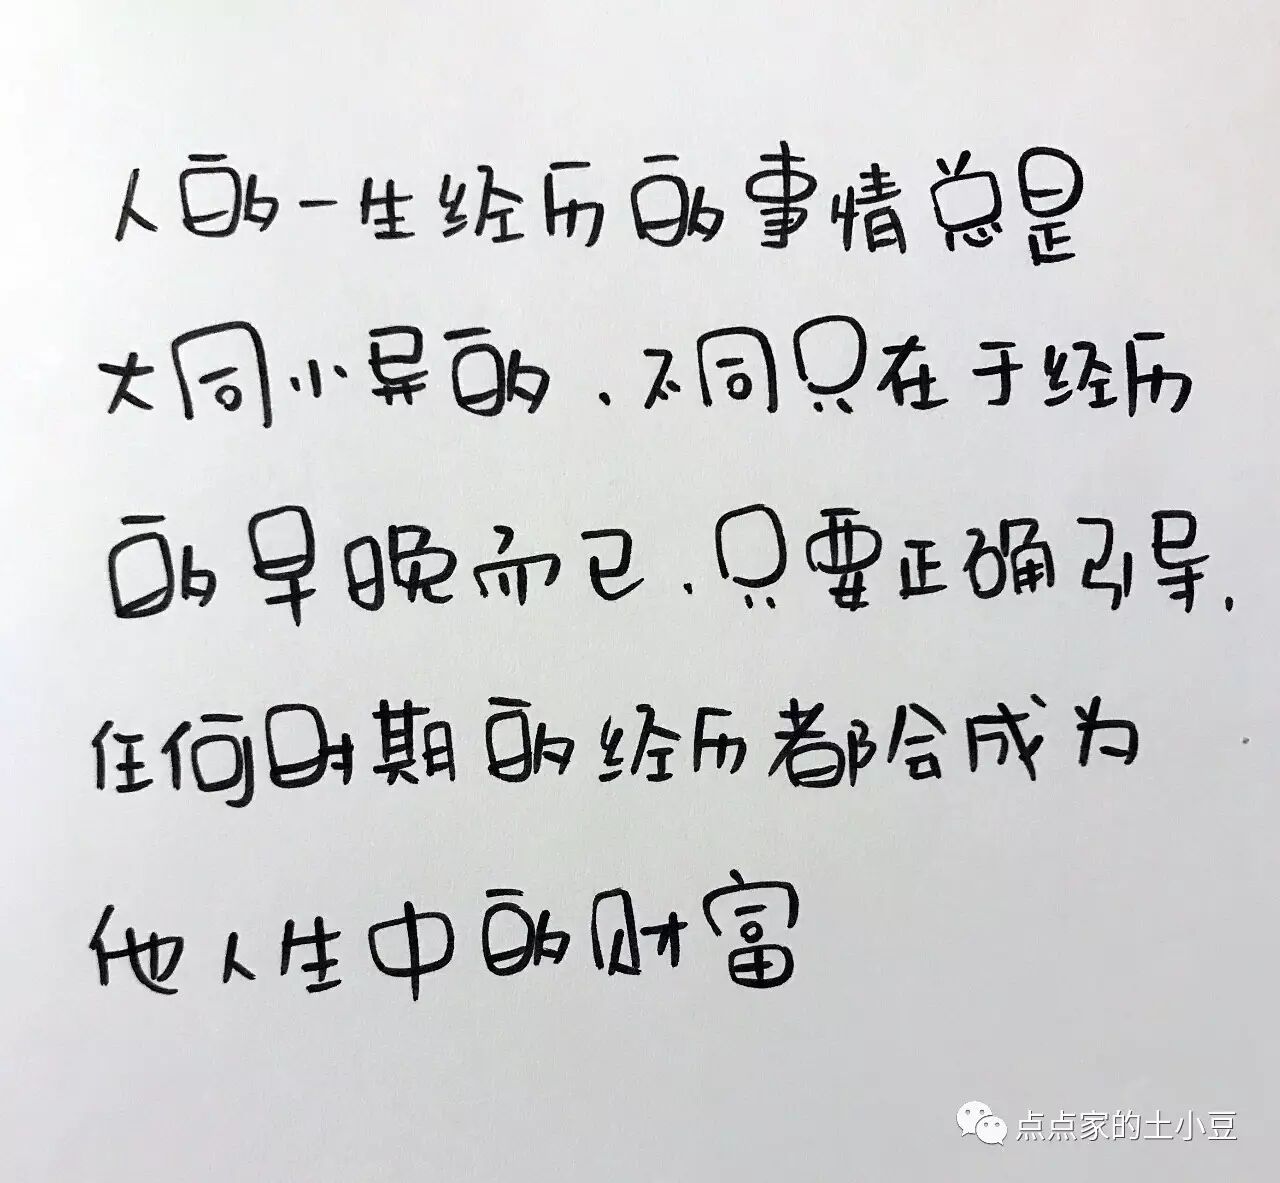 人的一生经历的事情总是
大同小异的.不同只在于经历
的早晚而已.只要正确引导.
任何时期的经历都会成为
他人生中的财富
点点家的土小豆